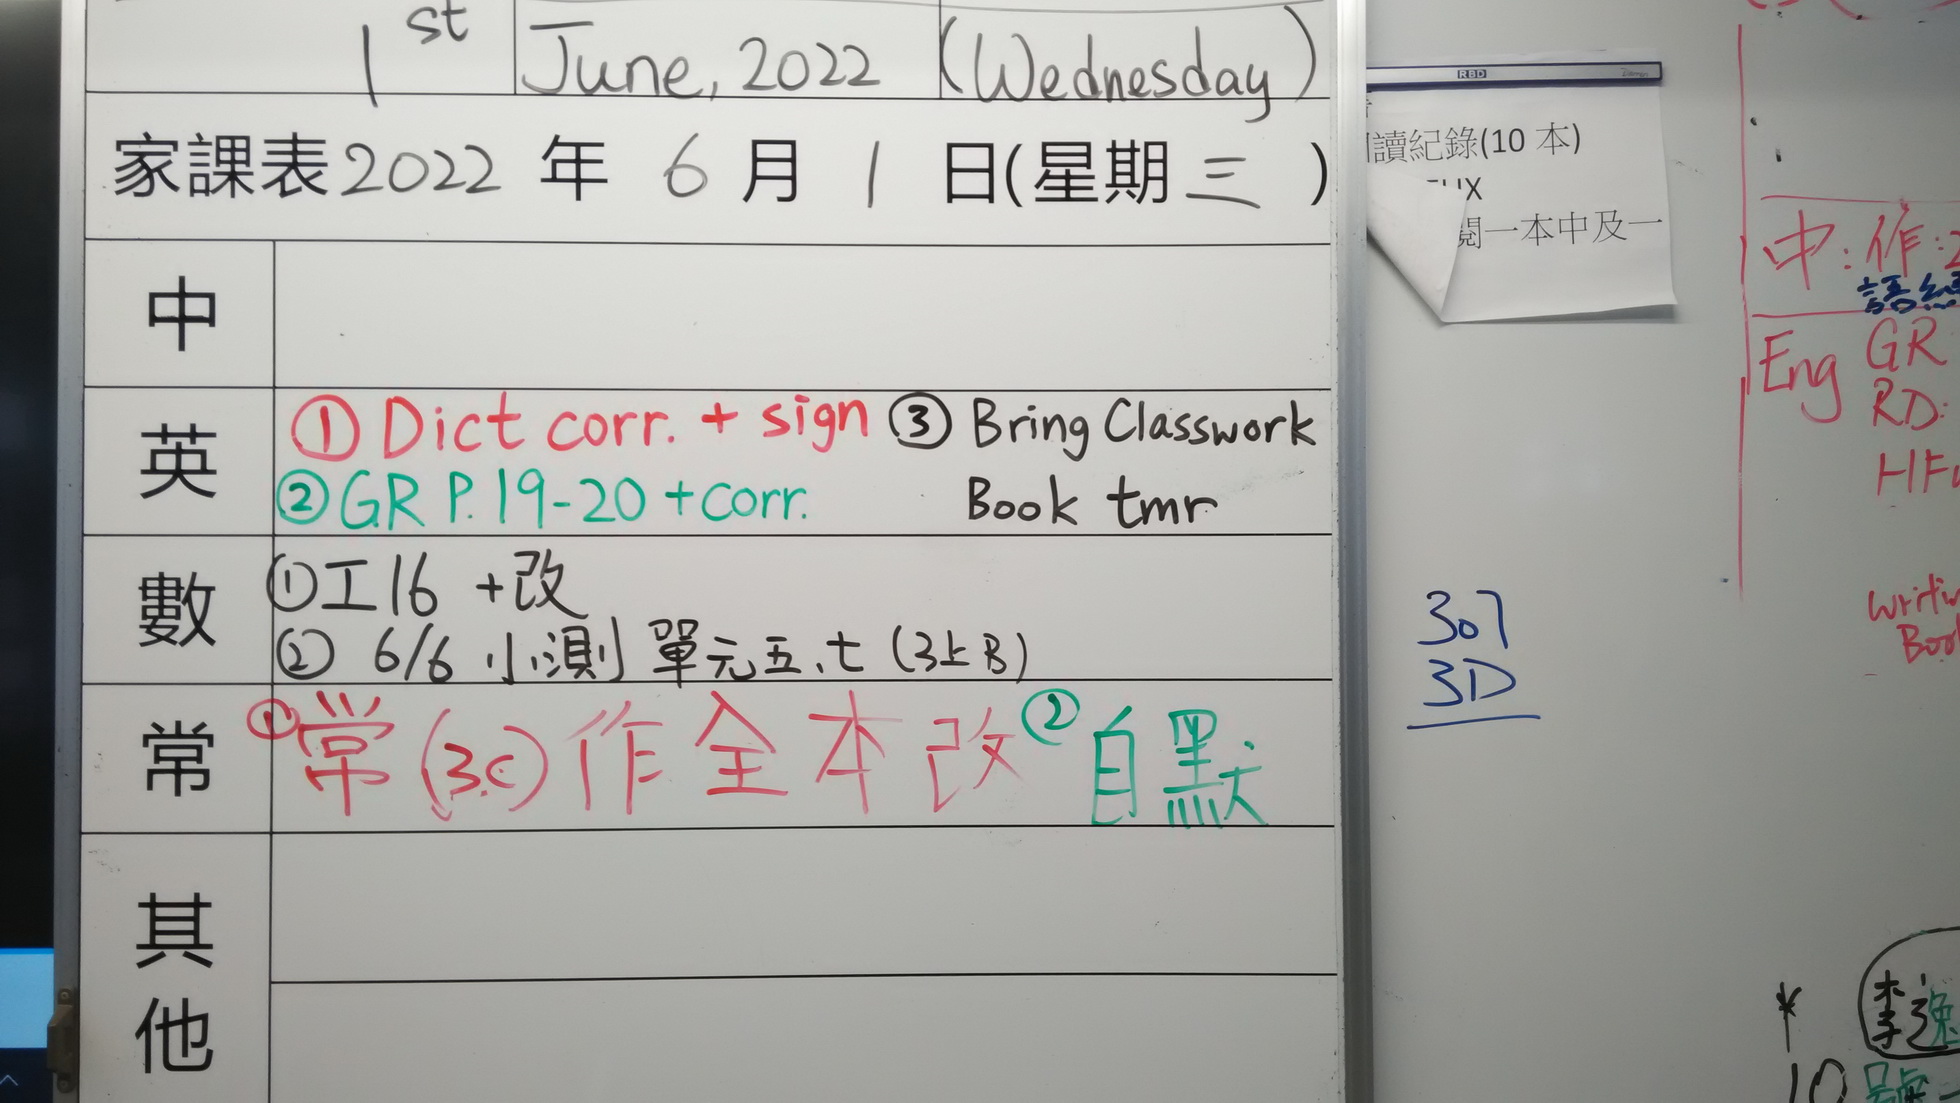 1st June, 2022 (Wednesday)
家課表2022 年 6 月 1 日(星期三)
中
英
① Dict corr. + sign
② GR P.19-20 + corr.
③ Bring Classwork
Book tmr
數
①工16 +改
② 6/6 小測 單元五、七 (3上B)
常
①常(3C)作全本改 ②自默
其
他
RBD
讀紀錄(10 本)
閱一本中及一
307
3D
中:作:
Eng GR
RD:
Book
*
10